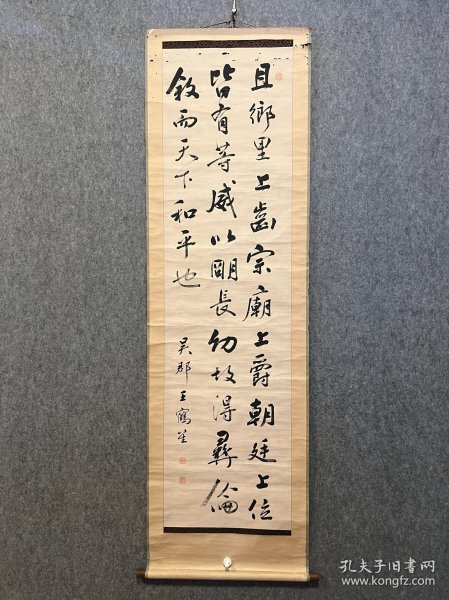 且鄉里上齒宗廟上爵朝廷上位
皆有等威以明長幼故得彝倫
敘而天下和平也
吴郡王鶴笙
孔夫子旧书网
www.kongfz.com